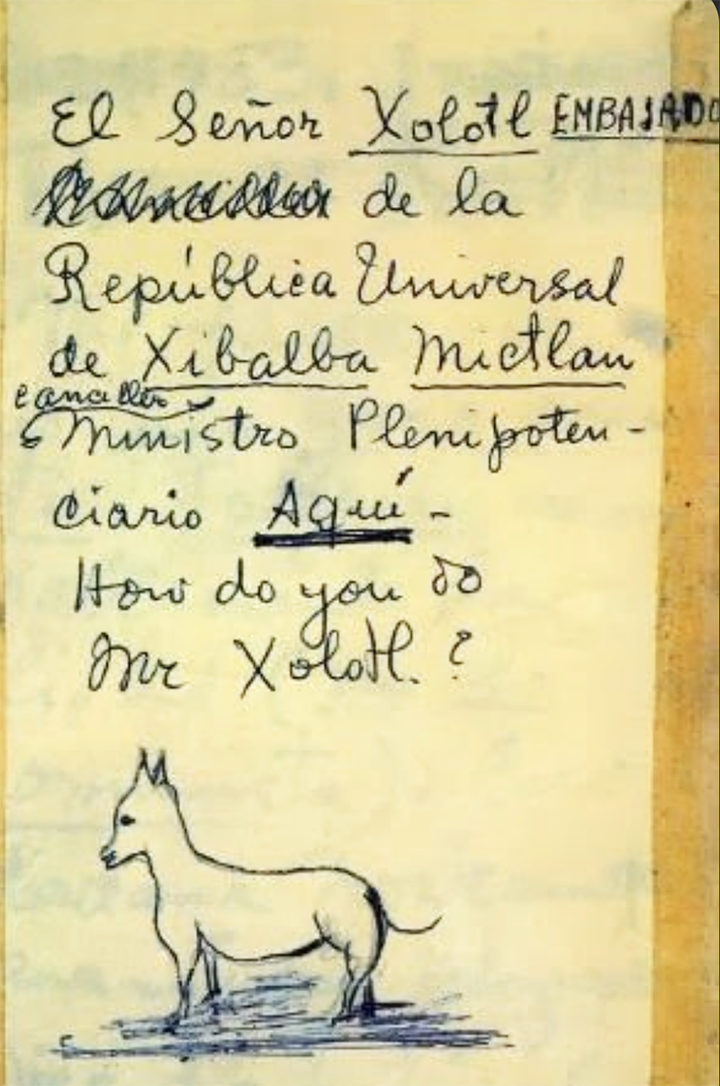 El Señor Xolotl EMBAJADO
de la
República Universal
de Xibalba Mictlan
canciller
Ministro Plenipoten-
ciario Aquí -
How do you do
Mr Xolotl. ?